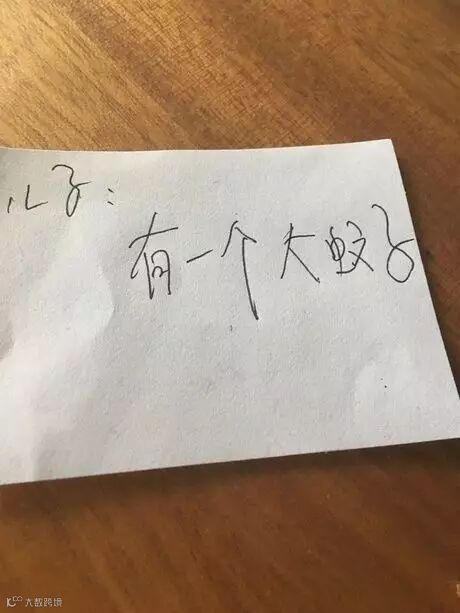 儿子:
有一个大蚊子
大数跨境